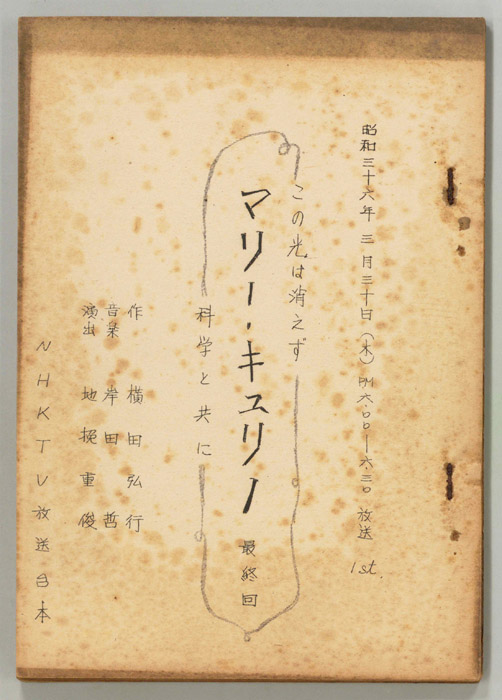 昭和三十六年 三月三十日(木) PM 六・〇〇―六・三〇 放送 1st.
この光は消えず
マリー・キュリー 最終回
科学と共に
作 横田弘行
音楽 岸田哲
演出 地挽重俊
NHKTV放送台本